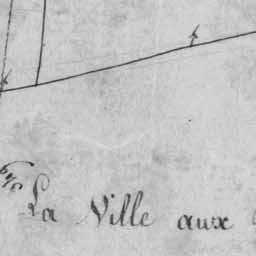 La Ville aux